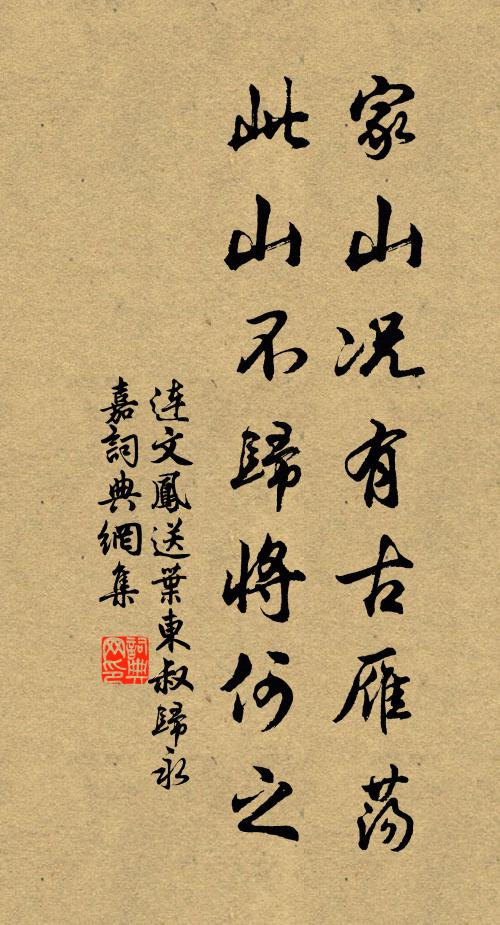 家山况有古雁蕩
此山不歸將何之
连文鳳送葉東叔歸永
嘉詞典網集
詞典
网印